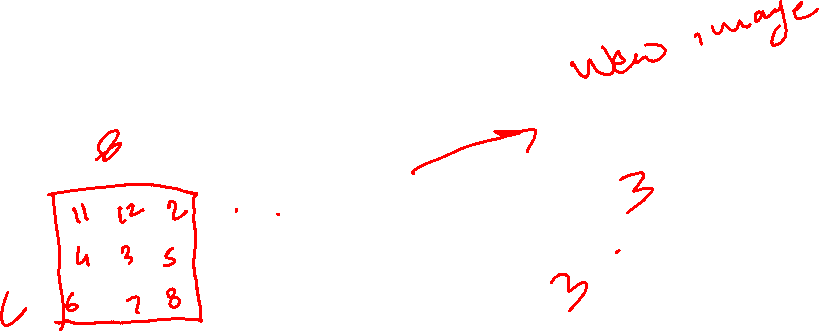 new image
8
11 12 2 . .
3
4 3 5
.
6 7 8
3